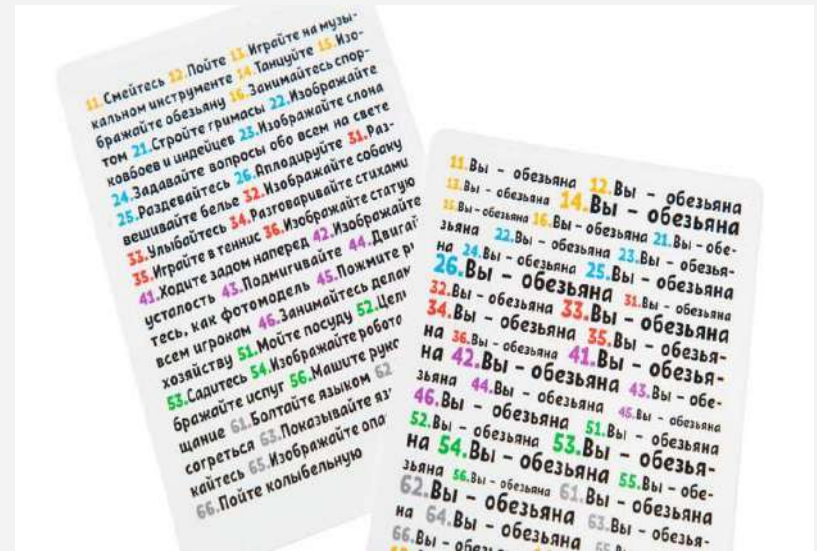 11.Смейтесь 12.Пойте 13.Играйте на музы-
кальном инструменте 14.Танцуйте 15.Изо-
бражайте обезьяну 16.Занимайтесь спор-
том 21.Стройте гримасы 22.Изображайте
ковбоев и индейцев 23.Изображайте слона
24.Задавайте вопросы обо всем на свете
25.Раздевайтесь 26.Аплодируйте 31.Раз-
вешивайте белье 32.Изображайте собаку
33.Улыбайтесь 34.Разговаривайте стихами
35.Играйте в теннис 36.Изображайте статую
41.Ходите задом наперед 42.Изображайте
усталость 43.Подмигивайте 44.Двигай
тесь, как фотомодель 45.Пожмите
всем игрокам 46.Занимайтесь
хозяйству 51.Мойте посуду 52.
53.Садитесь 54.Изображайте робота
бражайте испуг 56.Машите
щание 61.Болтайте языком 62
согреться 63.Показывайте
кайтесь 65.Изображайте
66.Пойте колыбельную
11.Вы - обезьяна 12.Вы - обезьяна
13.Вы - обезьяна 14.Вы - обезьяна
15.Вы - обезьяна 16.Вы - обезьяна 21.Вы - обе-
зьяна 22.Вы - обезьяна 23.Вы - обезья-
на 24.Вы - обезьяна 25.Вы - обезьяна
26.Вы - обезьяна 31.Вы - обезьяна
32.Вы - обезьяна 33.Вы - обезьяна
34.Вы - обезьяна 35.Вы - обезья-
на 36.Вы - обезьяна 41.Вы - обезья-
на 42.Вы - обезьяна 43.Вы - обе-
зьяна 44.Вы - обезьяна 45.Вы - обезьяна
46.Вы - обезьяна 51.Вы - обезьяна
52.Вы - обезьяна 53.Вы - обезья-
на 54.Вы - обезьяна 55.Вы - обе-
зьяна 56.Вы - обезьяна 61.Вы - обезьяна
62.Вы - обезьяна 63.Вы - обезья-
на 64.Вы - обезьяна 65.Вы
66.Вы - обезьяна